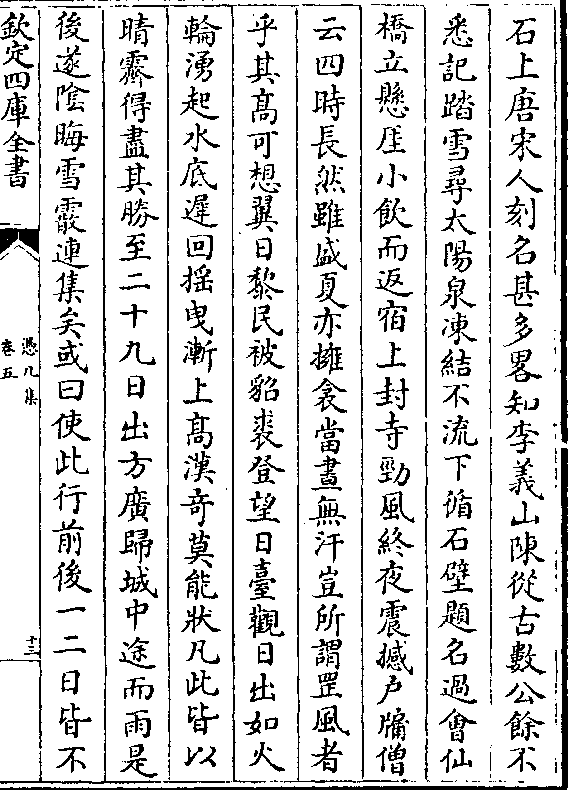 石上唐宋人刻名甚多畧知李義山陳從古數公餘不
悉記踏雪尋太陽泉凍結不流下循石壁題名過會仙
橋立懸厓小飲而返宿上封寺勁風終夜震撼戶牖僧
云四時長然雖盛夏亦擁衾當晝無汗豈所謂罡風者
乎其髙可想翼日黎民被貂裘登望日臺觀日出如火
輪湧起水底遲回搖曳漸上髙漢奇莫能狀凡此皆以
晴霽得盡其勝至二十九日出方廣歸城中途而雨是
後遂陰晦雪霰連集矣或曰使此行前後一二日皆不
欽定四庫全書
憑几集
卷五
十三